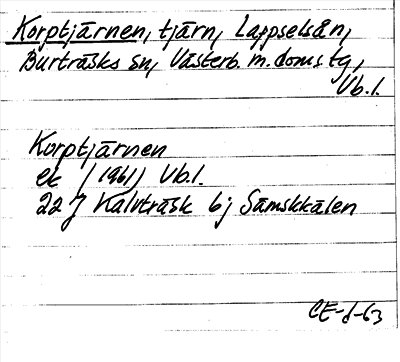 Korptjärnen, tjärn, Lappselsån,
Burträsks sn, Västerb. m. doms tg,
Vb.l.
Korptjärnen
ek (1961) Vb.l.
22 J Kalvträsk 6j Sämskkälen
CE-d-63